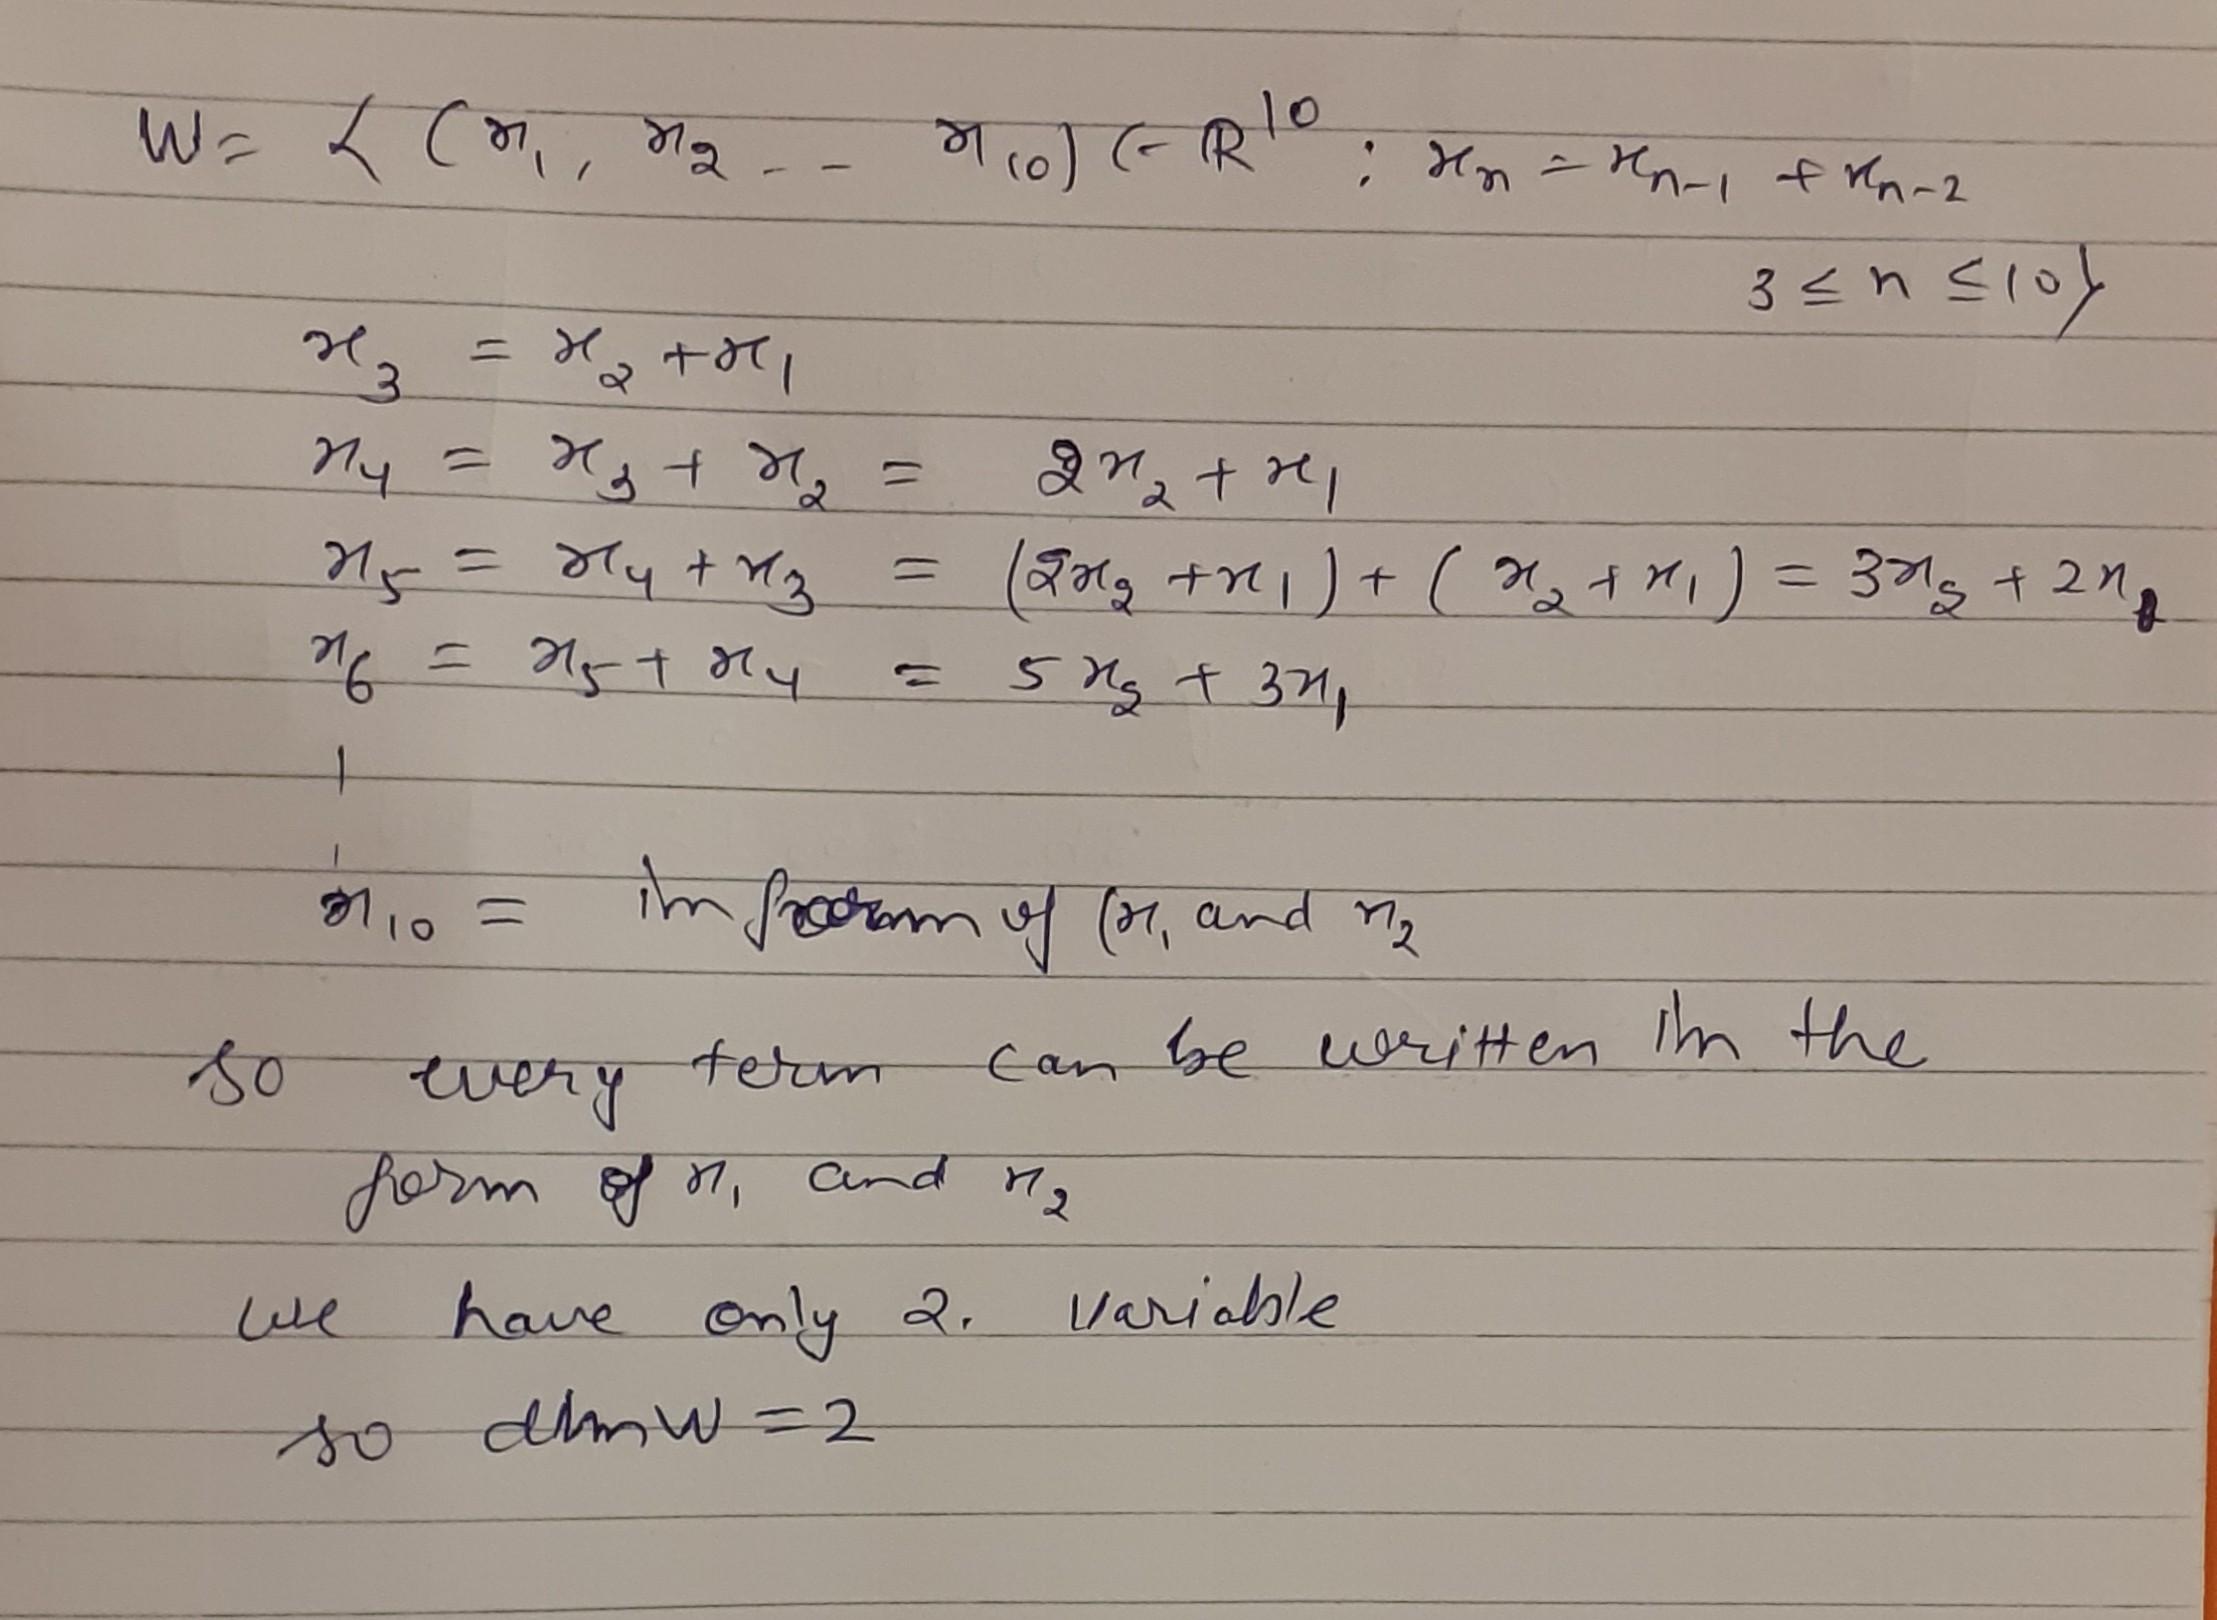 W = { (x₁, x₂ - - x₁₀) ∈ ℝ¹⁰ : xₙ = xₙ₋₁ + xₙ₋₂
3 ≤ n ≤ 10}
x₃ = x₂ + x₁
x₄ = x₃ + x₂ = 2x₂ + x₁
x₅ = x₄ + x₃ = (2x₂ + x₁) + (x₂ + x₁) = 3x₂ + 2x₁
x₆ = x₅ + x₄ = 5x₂ + 3x₁
x₁₀ = in form of (x₁ and x₂
so every term can be written in the
form of x₁ and x₂
we have only 2. variable
so dim W = 2